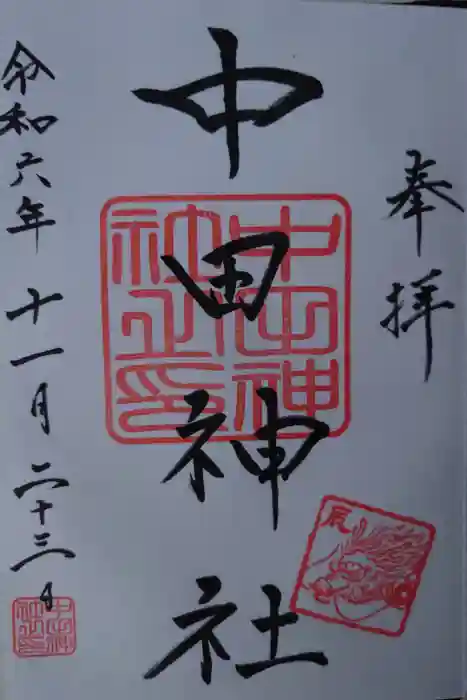 奉拝
中田神社
中田神社之印
辰
令和六年十一月二十三日